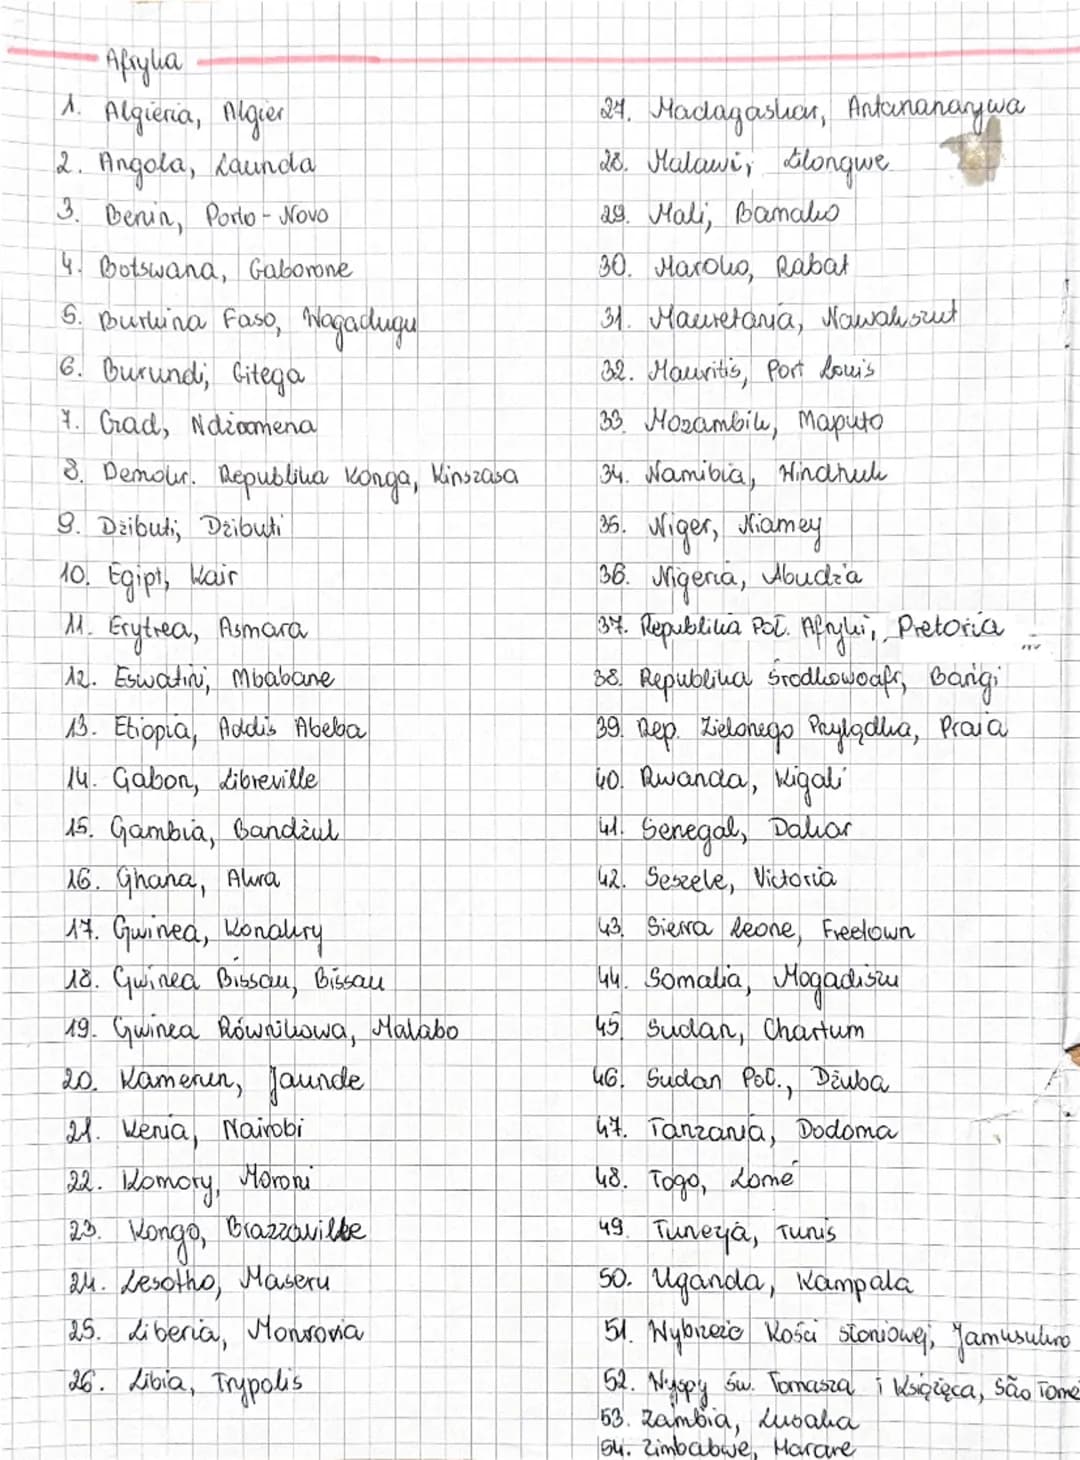 Afryka
1. Algieria, Algier
2. Angola, Launda
3. Benin, Porto-Novo
4. Botswana, Gaborone
5. Burkina Faso, Wagadugu
6. Burundi, Gitega
7. Czad, Ndżamena
8. Demokr. Republika Konga, Kinszasa
9. Dżibuti, Dżibuti
10. Egipt, Kair
11. Erytrea, Asmara
12. Eswatini, Mbabane
13. Etiopia, Addis Abeba
14. Gabon, Libreville
15. Gambia, Bandżul
16. Ghana, Akra
17. Gwinea, Konakry
18. Gwinea Bissau, Bissau
19. Gwinea Równikowa, Malabo
20. Kamerun, Jaunde
21. Kenia, Nairobi
22. Komory, Moroni
23. Kongo, Brazzaville
24. Lesotho, Maseru
25. Liberia, Monrovia
26. Libia, Trypolis
27. Madagaskar, Antananarywa
28. Malawi, Lilongwe
29. Mali, Bamako
30. Maroko, Rabat
31. Mauretania, Nawakszut
32. Mauritis, Port Louis
33. Mozambik, Maputo
34. Namibia, Windhuk
35. Niger, Niamey
36. Nigeria, Abudża
37. Republika Poł. Afryki, Pretoria
38. Republika Środkowoafr, Bangi
39. Rep. Zielonego Przylądka, Praia
40. Rwanda, Kigali
41. Senegal, Dakar
42. Seszele, Victoria
43. Sierra Leone, Freetown
44. Somalia, Mogadiszu
45. Sudan, Chartum
46. Sudan Poł., Dżuba
47. Tanzania, Dodoma
48. Togo, Lomé
49. Tunezja, Tunis
50. Uganda, Kampala
51. Wybrzeże Kości słoniowej, Jamusukro
52. Wyspy Św. Tomasza i Książęca, São Tomé
53. Zambia, Lusaka
54. Zimbabwe, Harare